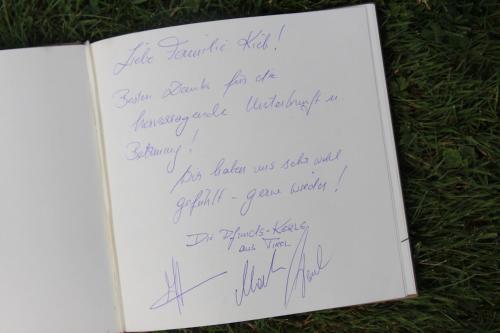 Liebe Familie Kieb!
Besten Dank für die
hervorragende Unterkunft u.
Betreuung!
Wir haben uns sehr wohl
gefühlt - gerne wieder!
Die Pfunds-Kerle
aus Tirol